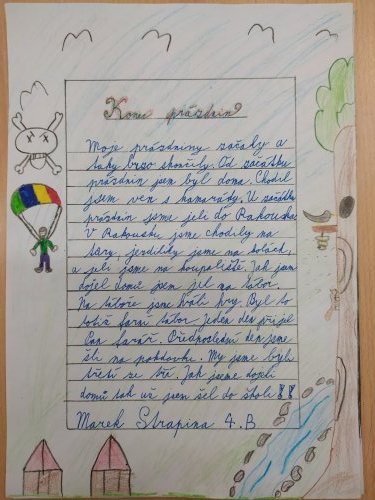 Konec prázdnin
Moje prázdniny začaly a
taky brzo skončily. Od začátku
prázdnin jsem byl doma. Chodil
jsem ven s kamarády. V začátku
prázdnin jsme jeli do Rakouska
V Rakousku jsme chodily na
túry, jezdily jsme na kolách,
a jeli jsme na koupaliště. Jak jsem
dojel domů jsem jel na tábor.
Na táboře jsme hráli hry. Byl to
totiž farní tábor. Jeden den přijel
Pan farář. Předposlední den jsme
šli na pohdovku. My jsme byli
třetí ze tří. Jak jsme dojeli
domů tak už jsem šel do školi !!
Marek Strapina 4.B